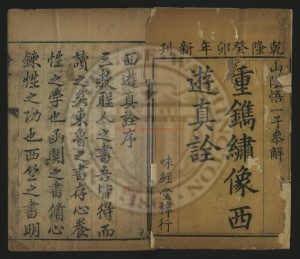 乾隆癸卯年新刊
山陰悟一子叅解
重鐫繡像西
遊真詮
味經堂梓行
西遊真詮序
三教聖人之書吾皆得而
讀之矣東魯之書存心養
性之學也函關之書脩心
鍊性之功也西竺之書明